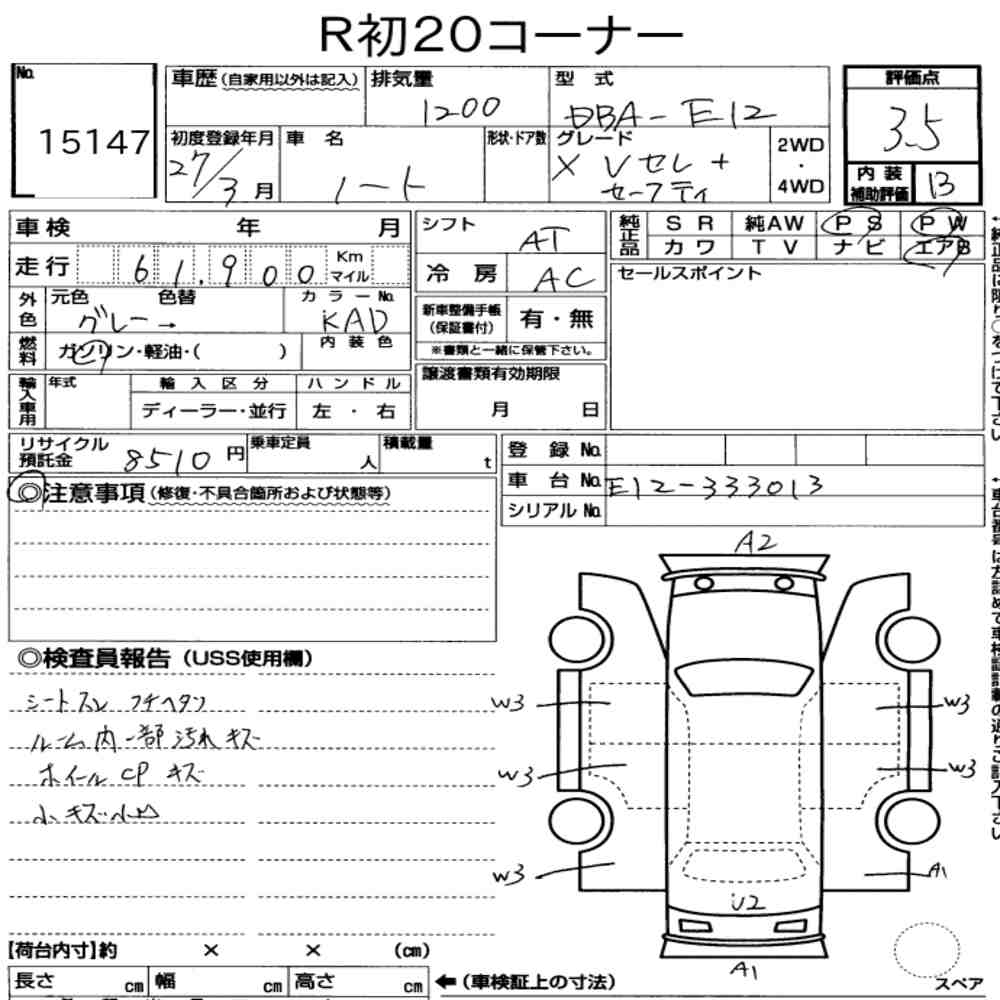 R初20コーナー
No. 15147
車歴(自家用以外は記入) 排気量 1200 型式 DBA-E12 評価点 3.5
初度登録年月 27/3月 車名 ノート 形状・ドア数 グレード X Vセレ+ セーフティ 2WD・4WD 内装補助評価 B
車検 年 月 シフト AT 純正品 SR 純AW PS PW
走行 61,900 Km マイル 冷房 AC カワ TV ナビ エアB
外色 元色 グレー→ 色替 カラーNo. KAD 新車整備手帳(保証書付) 有・無 セールスポイント
燃料 ガソリン・軽油・( ) 内装色 ※書類と一緒に保管下さい。
輸入車用 年式 輸入区分 ハンドル 譲渡書類有効期限
ディーラー・並行 左・右 月 日
リサイクル預託金 8510円 乗車定員 人 積載量 t 登録No.
◎注意事項(修復・不具合箇所および状態等) 車台No. E12-333013
シリアルNo.
A2
◎検査員報告(USS使用欄)
シートスレ フチヘタリ
ルーム内一部汚れキズ
ホイールCPキズ
小キズ小凹
W3 W3
W3 W3
W3 A1
U2
A1
【荷台内寸】約 × × (cm)
長さ cm 幅 cm 高さ cm ←(車検証上の寸法) スペア